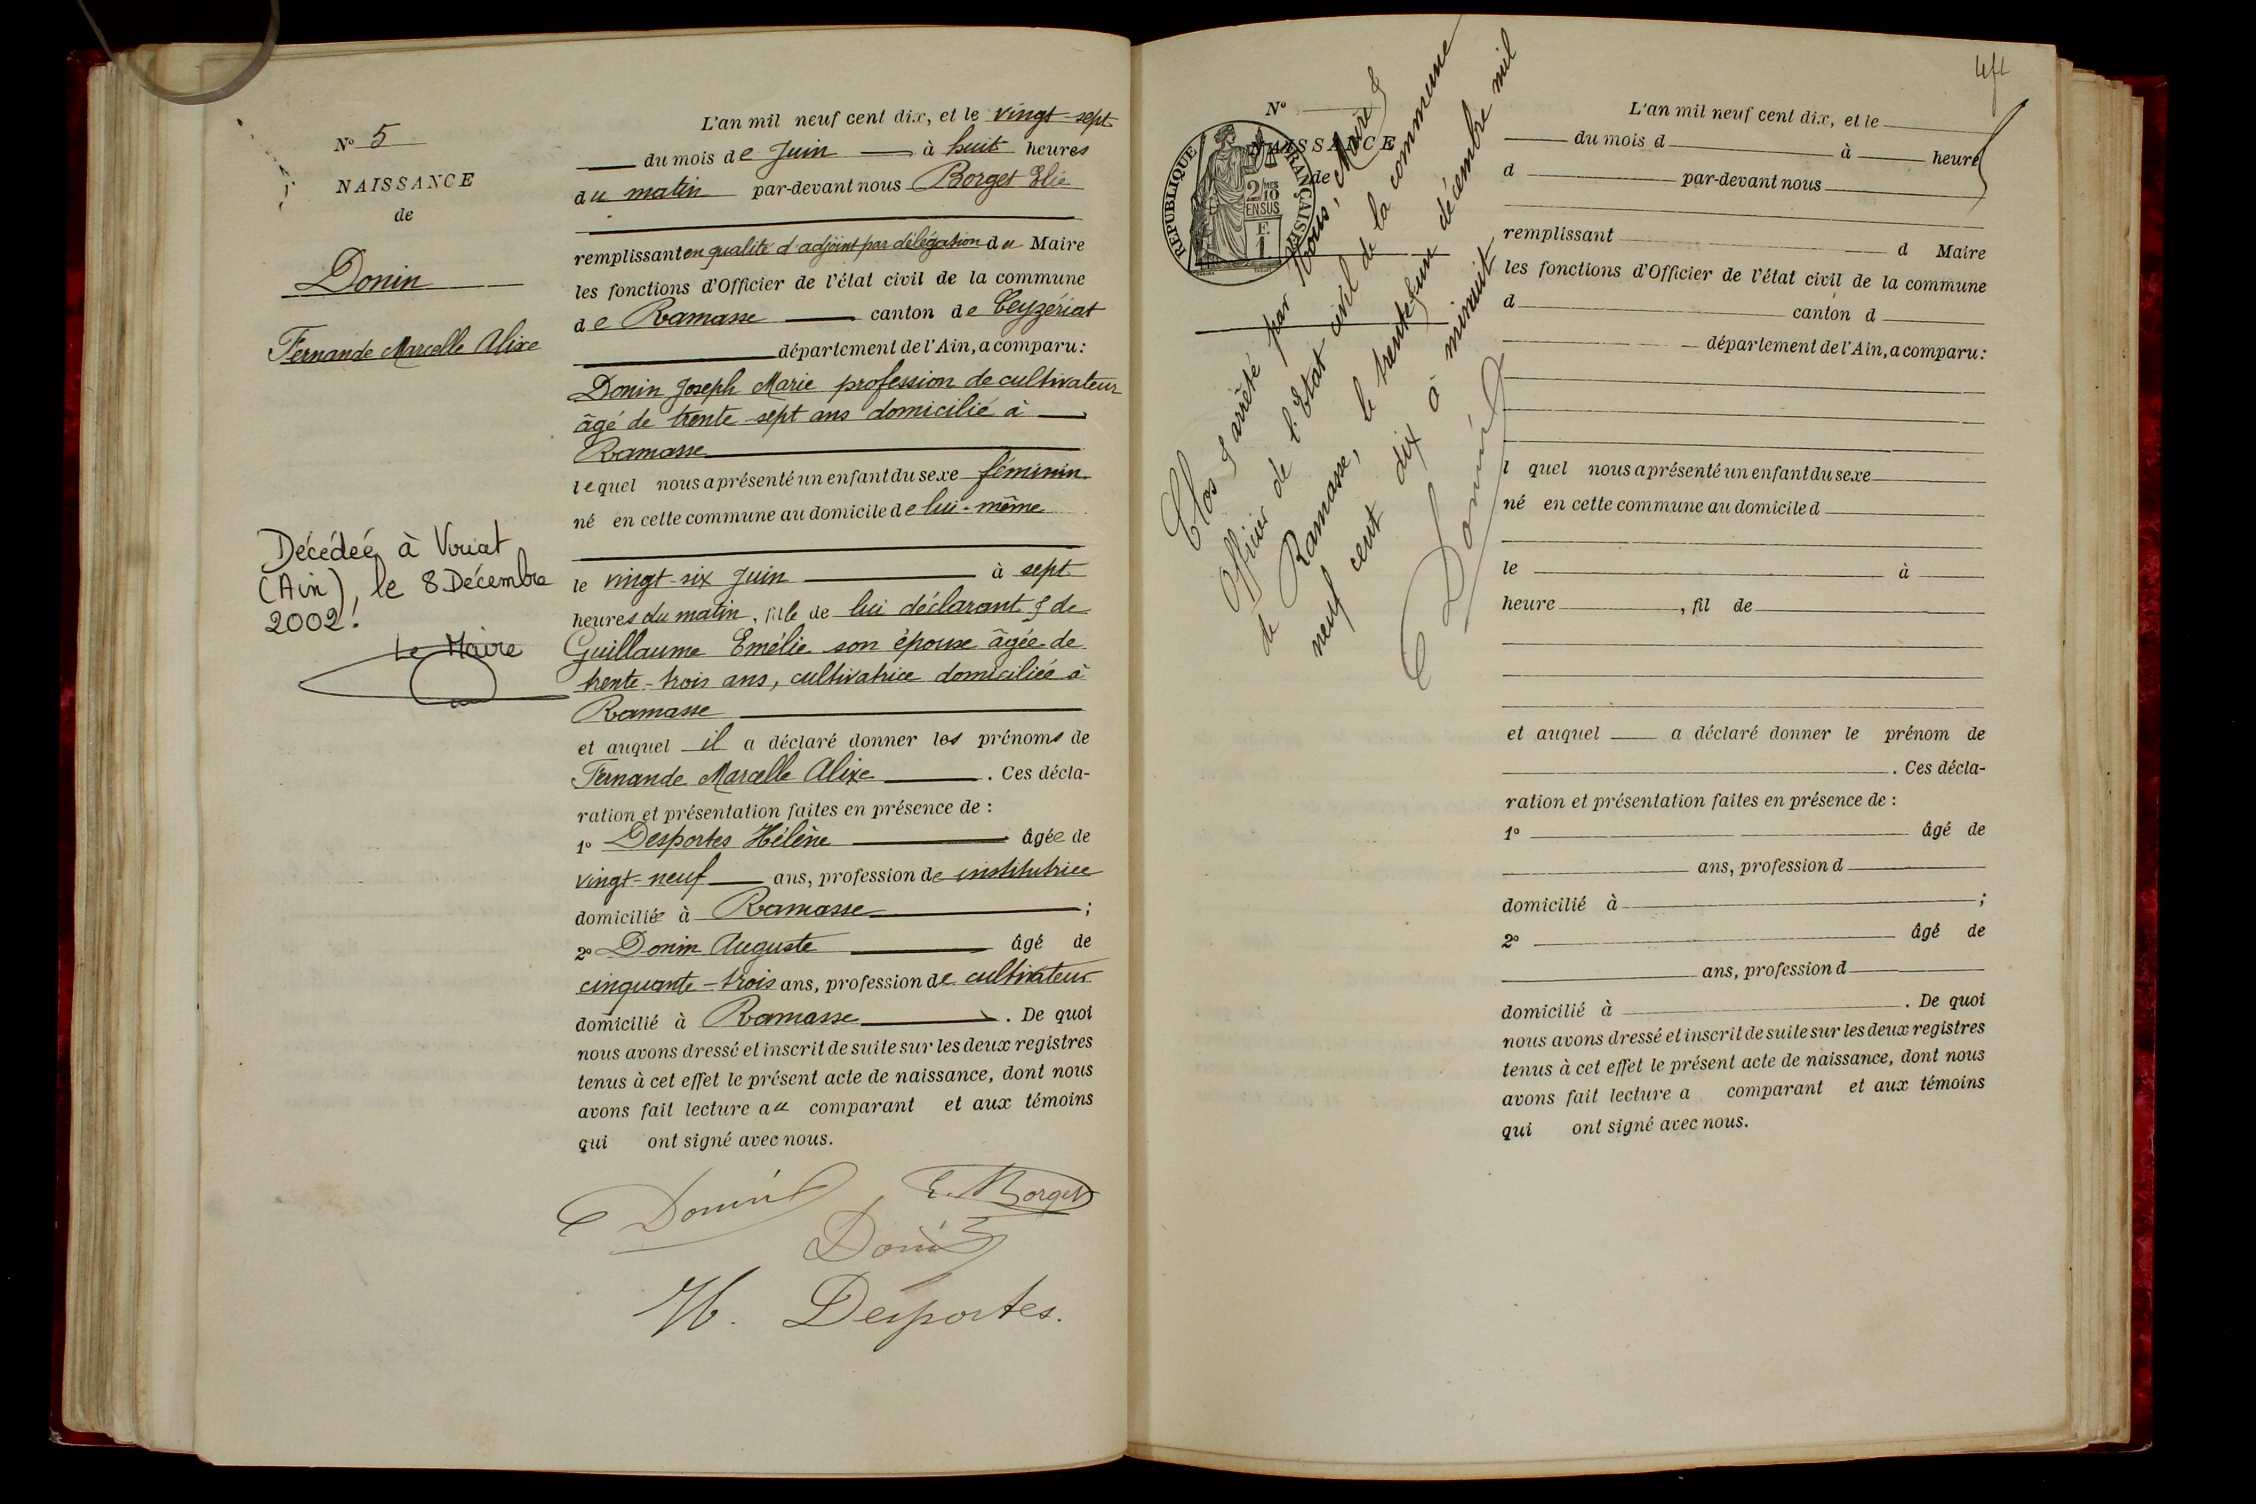 N° 5
NAISSANCE
de
Donin
Fernande Marcelle Alixe
Décédeé à Viriat
(Ain), le 8 Décembre
2002!
Le Maire
L'an mil neuf cent dix, et le vingt-sept
du mois de Juin à huit heures
du matin par-devant nous Borget Elie
remplissant en qualité d'adjoint par délégation du Maire
les fonctions d'Officier de l'état civil de la commune
de Ramasse canton de Ceyzériat
département de l'Ain, a comparu:
Donin Joseph Marie profession de cultivateur
âgé de trente-sept ans domicilié à
Ramasse
lequel nous a présenté un enfant du sexe féminin
né en cette commune au domicile de lui-même
le vingt-six Juin à sept
heures du matin, fille de lui déclarant & de
Guillaume Emélie son épouse âgée de
trente-trois ans, cultivatrice domiciliée à
Ramasse
et auquel il a déclaré donner les prénoms de
Fernande Marcelle Alixe. Ces décla-
ration et présentation faites en présence de :
1° Desportes Hélène âgée de
vingt-neuf ans, profession de institutrice
domiciliée à Ramasse ;
2° Donin Auguste âgé de
cinquante-trois ans, profession de cultivateur
domicilié à Ramasse. De quoi
nous avons dressé et inscrit de suite sur les deux registres
tenus à cet effet le présent acte de naissance, dont nous
avons fait lecture au comparant et aux témoins
qui ont signé avec nous.
Donin
E. Borget
Donin
H. Desportes.
N°
NAISSANCE
de
RÉPUBLIQUE FRANÇAISE
2/10 MES
EN SUS
E
1
Clos & arrêté par Nous, Maire &
Officier de l'Etat civil de la commune
de Ramasse, le trente & un décembre mil
neuf cent dix à minuit
Donin
L'an mil neuf cent dix, et le
du mois d à heure
d par-devant nous
remplissant d Maire
les fonctions d'Officier de l'état civil de la commune
d canton d
département de l'Ain, a comparu:
l quel nous a présenté un enfant du sexe
né en cette commune au domicile d
le à
heure , fil de
et auquel a déclaré donner le prénom de
. Ces décla-
ration et présentation faites en présence de :
1° âgé de
ans, profession d
domicilié à ;
2° âgé de
ans, profession d
domicilié à . De quoi
nous avons dressé et inscrit de suite sur les deux registres
tenus à cet effet le présent acte de naissance, dont nous
avons fait lecture a comparant et aux témoins
qui ont signé avec nous.